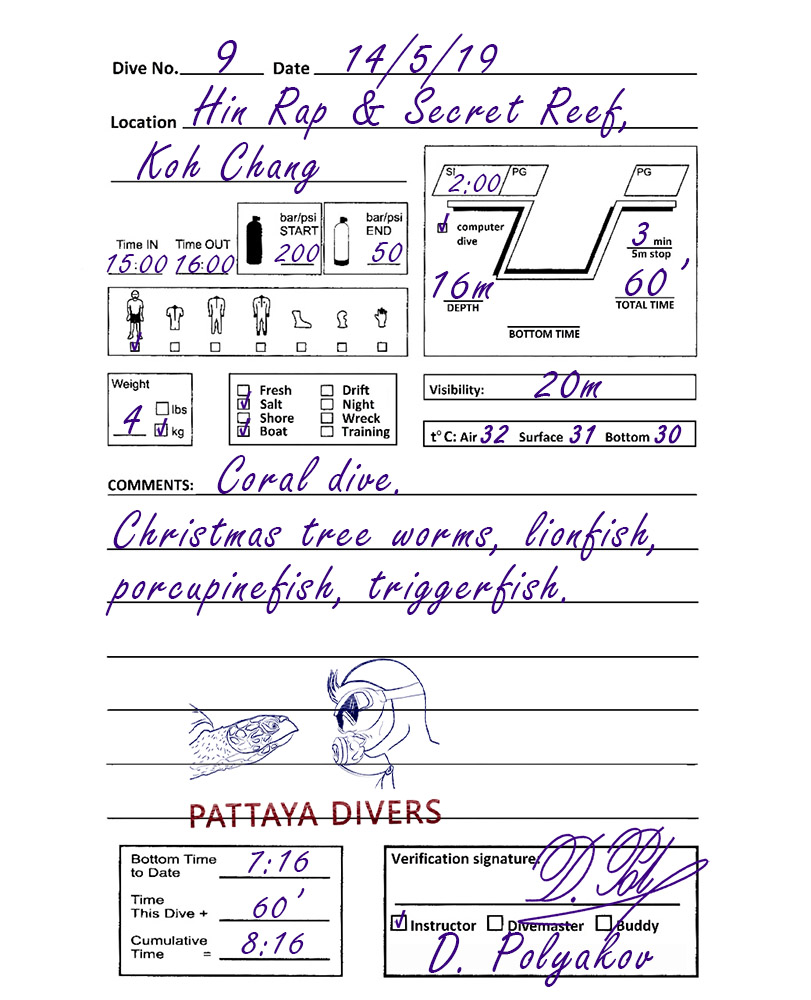 Dive No. 9 Date 14/5/19
Location Hin Rap & Secret Reef,
Koh Chang
SI 2:00 PG PG
computer dive
3 min
5m stop
16m
DEPTH
60'
TOTAL TIME
BOTTOM TIME
Time IN Time OUT
15:00 16:00
bar/psi START 200
bar/psi END 50
Weight
4 lbs kg
Fresh Drift
Salt Night
Shore Wreck
Boat Training
Visibility: 20m
t° C: Air 32 Surface 31 Bottom 30
COMMENTS: Coral dive.
Christmas tree worms, lionfish,
porcupinefish, triggerfish.
PATTAYA DIVERS
Bottom Time to Date 7:16
Time This Dive + 60'
Cumulative Time = 8:16
Verification signature: D. Pol
Instructor Divemaster Buddy
D. Polyakov